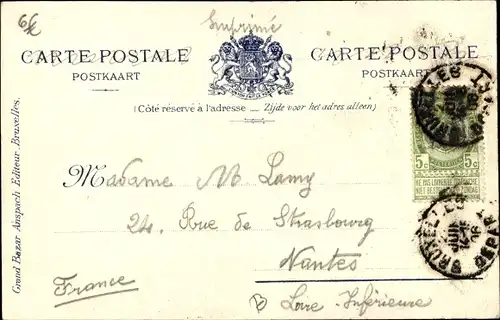 Imprimé
CARTE POSTALE
POSTKAART
CARTE POSTALE
POSTKAART
(Côté réservé à l'adresse — Zijde voor het adres alleen)
5c 5c
NE PAS LIVRER LE DIMANCHE
NIET BESTELLEN OP ZONDAG
Madame M Lamy
24, Rue de Strasbourg
Nantes
France
Loire-Inférieure
Grand Bazar Anspach Editeur Bruxelles.